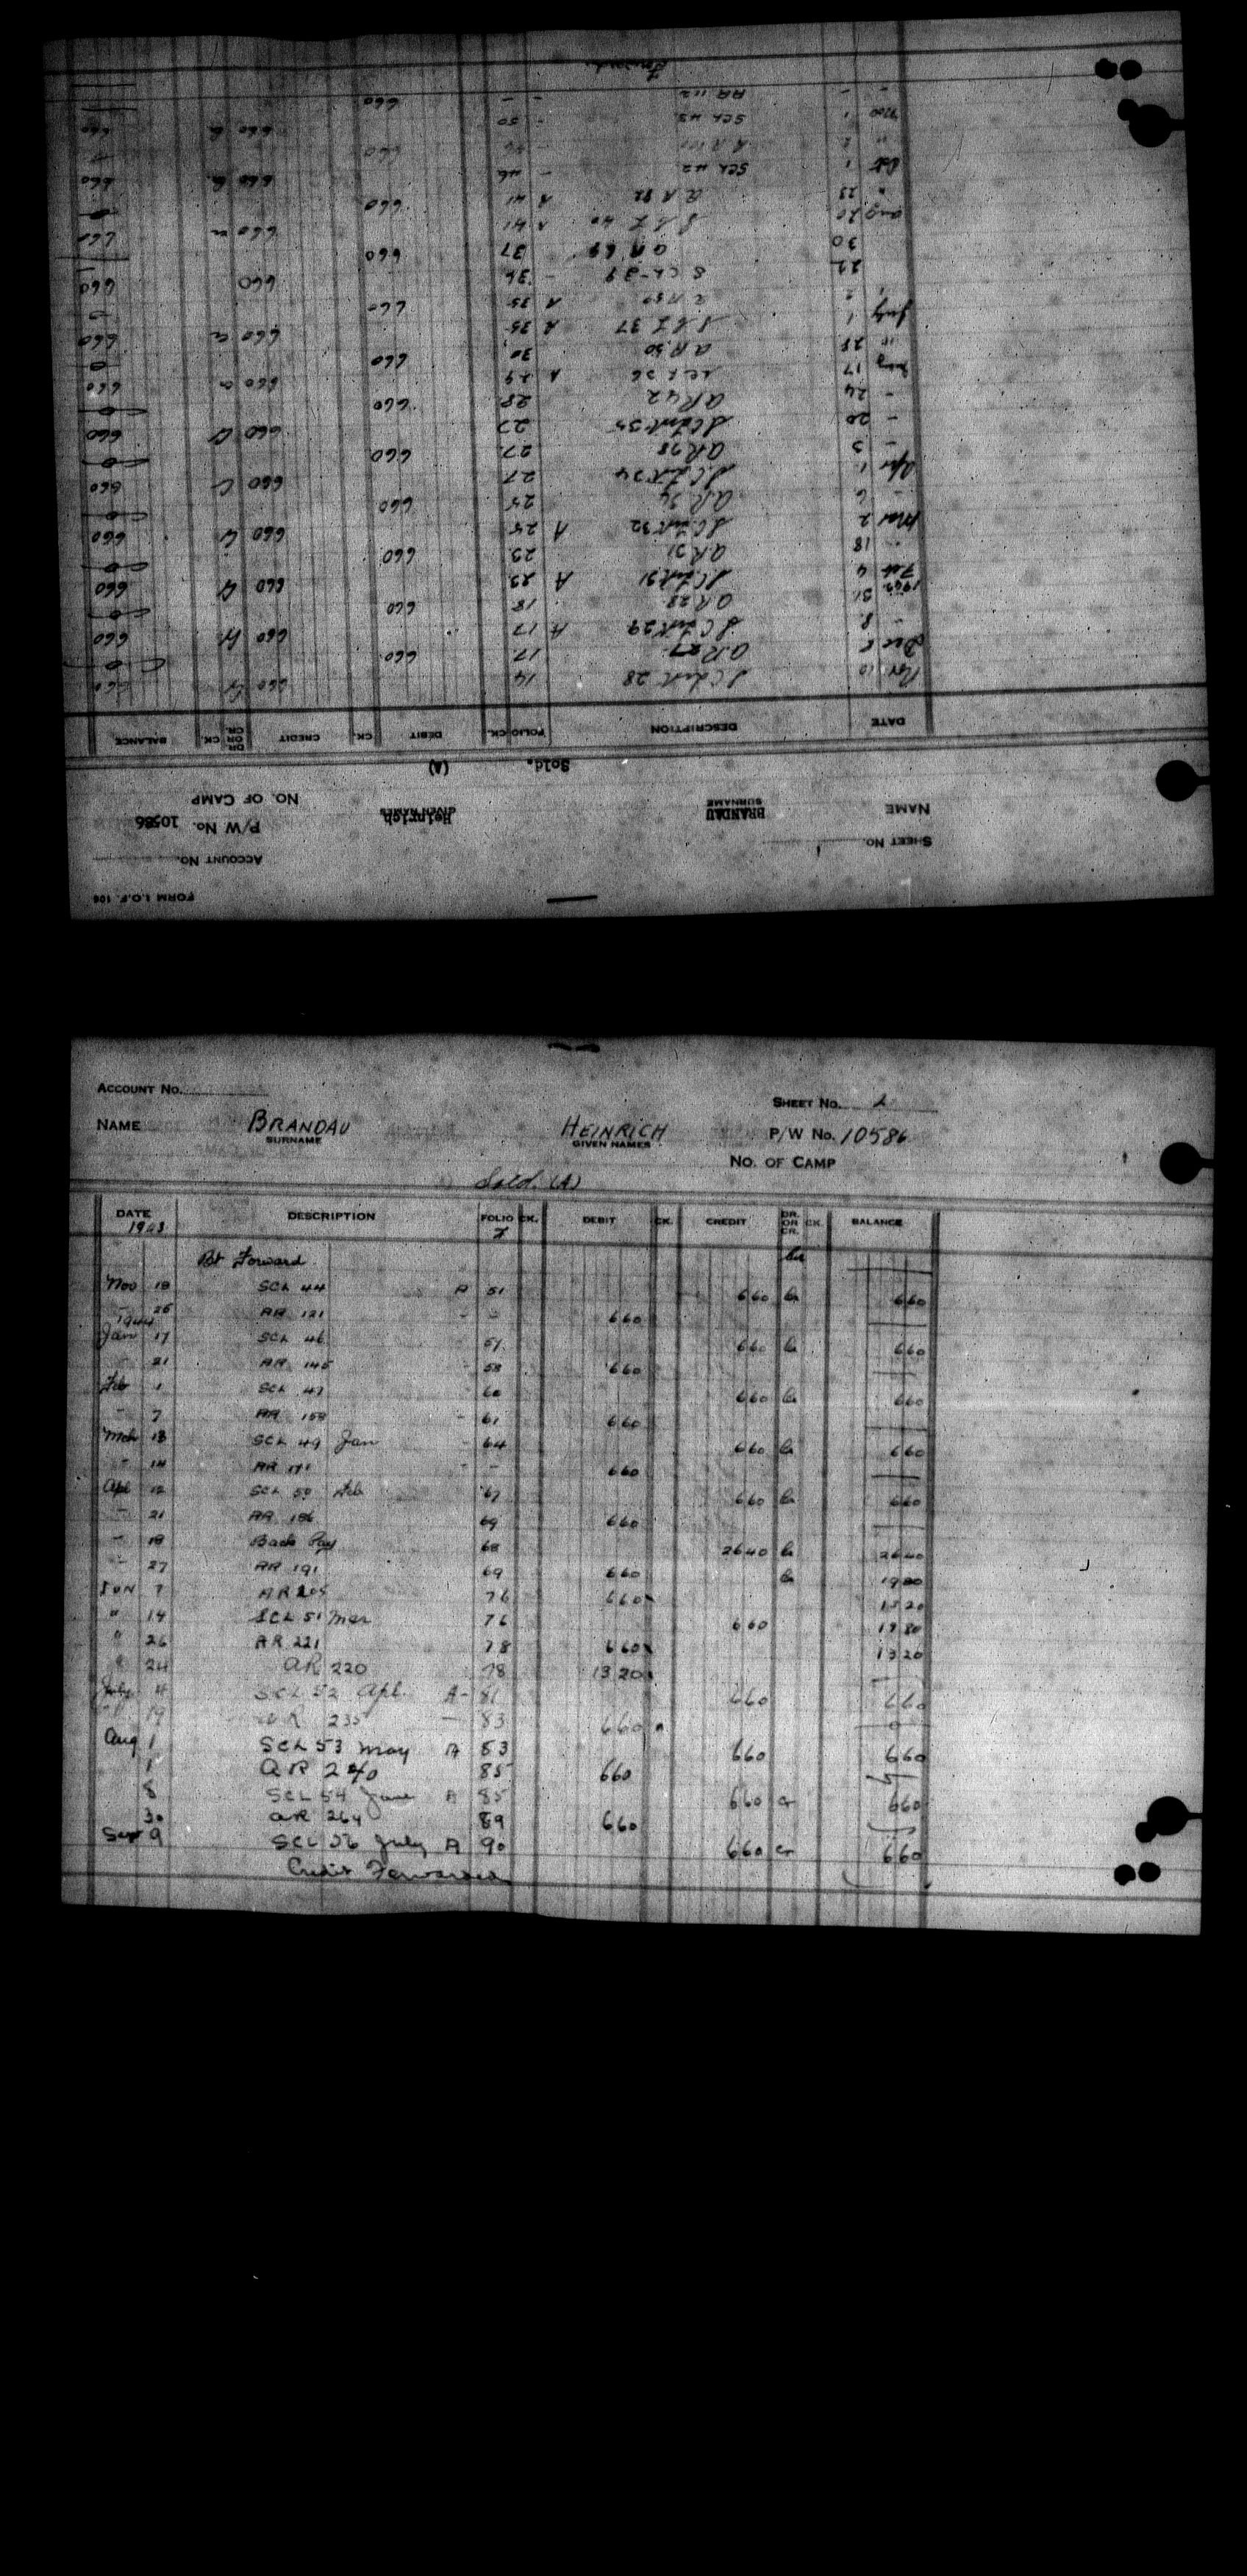 FORM I.O.F. 106
ACCOUNT No.
SHEET No. 1
P/W No. 10586
NAME BRANDAU Heinrich
SURNAME GIVEN NAMES
NO. OF CAMP
Sold. (A)
DATE DESCRIPTION FOLIO CK. DEBIT CK. CREDIT DR. OR CR. CK. BALANCE
Nov 10 28 14 660 Cr 660
Dec 5 AR 27 17 660 0
- 8 29 A 17 660 Cr 660
31 AR 28 18 660 0
Feb 4 31 A 23 660 Cr 660
" 18 AR 31 23 660 0
Mar 2 32 A 25 660 Cr 660
- 6 AR 34 25 660 0
Apr 1 34 27 660 Cr 660
- 5 AR 38 27 660 0
- 20 35 27 660 Cr 660
- 24 AR 42 28 660 0
17 36 A 29 660 Cr 660
" 28 AR 50 30 660 0
July 1 37 A 35 660 Cr 660
35 660
22 Sch-39 - 36 660 660
30 AR 69 37 660
Aug 20 40 A 41 660 Cr 660
" 23 AR 92 A 41 660
Oct 1 Sch 42 - 46 660 Cr 660
660
Nov 1 Sch 43 - 50 660 Cr 660
- - AR 112 - - 660
Forward
ACCOUNT No.
SHEET No. 2
NAME BRANDAU HEINRICH P/W No. 10586
SURNAME GIVEN NAMES
NO. OF CAMP
Sold. (A)
DATE DESCRIPTION FOLIO CK. DEBIT CK. CREDIT DR. OR CR. CK. BALANCE
1943
Bt Forward Cr
Nov 18 SCL 44 A 51 660 Cr 660
- 26 AR 121 - - 660
1944
Jan 17 SCL 46 57 660 Cr 660
- 21 AR 145 58 660
Feb 1 SCL 47 60 660 Cr 660
- 7 AR 158 - 61 660
Mch 13 SCL 49 Jan - 64 660 Cr 660
- 14 AR 171 - - 660
Apl 12 SCL 50 Feb 67 660 Cr 660
- 21 AR 186 69 660
- 18 Back Pay 68 2640 Cr 2640
- 27 AR 191 69 660 Cr 1980
Jun 7 AR 205 76 660 1320
" 14 SCL 51 Mar 76 660 1980
" 26 AR 221 78 660 1320
" 24 AR 220 78 1320
July 4 SCL 52 Apl. A- 81 660 660
19 AR 235 - 83 660 0
Aug 1 SCL 53 May A 83 660 660
1 AR 240 85 660
8 SCL 54 June A 85 660 Cr 660
30 AR 264 89 660
Sept 9 SCL 56 July A 90 660 Cr 660
Credit Forwarded